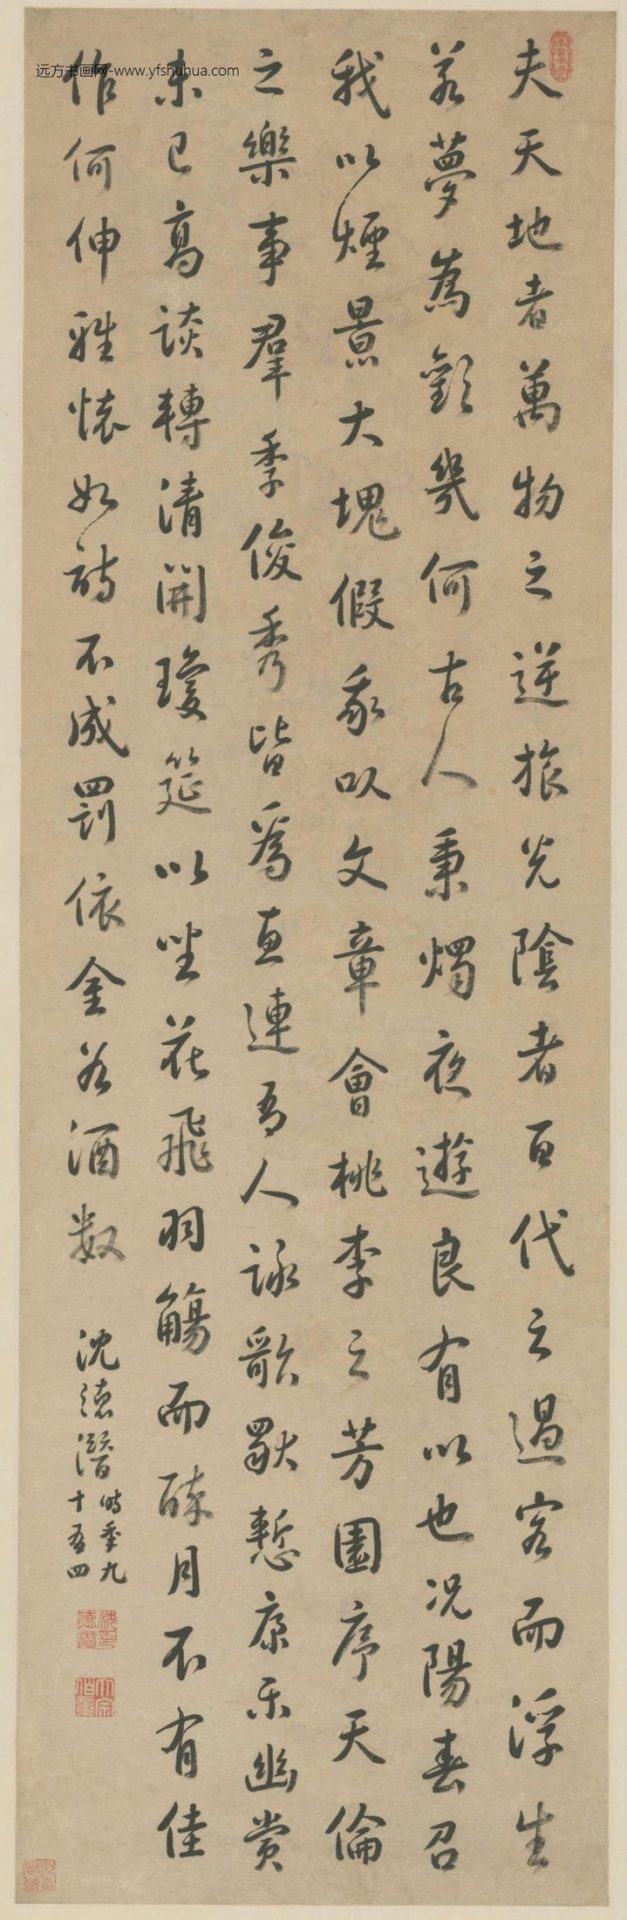 远方书画网-www.yfshuhua.com
夫天地者萬物之逆旅光陰者百代之過客而浮生
若夢為歡幾何古人秉燭夜遊良有以也況陽春召
我以煙景大塊假我以文章會桃李之芳園序天倫
之樂事羣季俊秀皆為惠連吾人詠歌獨慙康樂幽賞
未已高談轉清開瓊筵以坐花飛羽觴而醉月不有佳
作何伸雅懷如詩不成罰依金谷酒數
沈德潛時年九十有四